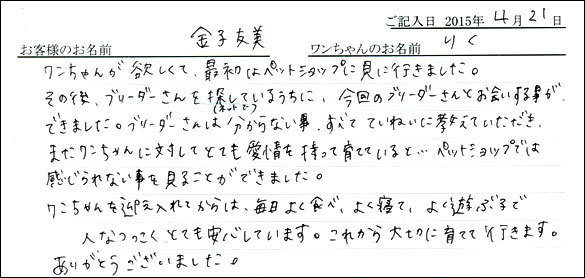 ご記入日 2015年 4月 21日
お客様のお名前 金子友美 ワンちゃんのお名前 りく
ワンちゃんが欲しくて、最初はペットショップに見に行きました。
その後、ブリーダーさんを探しているうちに、今回のブリーダーさんとお会いする事が
(ネットで)
できました。ブリーダーさんは分からない事、すべてていねいに教えていただき、
またワンちゃんに対してとても愛情を持って育てていると…ペットショップでは
感じられない事を見ることができました。
ワンちゃんを迎え入れてからは、毎日よく食べ、よく寝て、よく遊ぶ子で
人なつっこく、とても安心しています。これから大切に育てて行きます。
ありがとうございました。